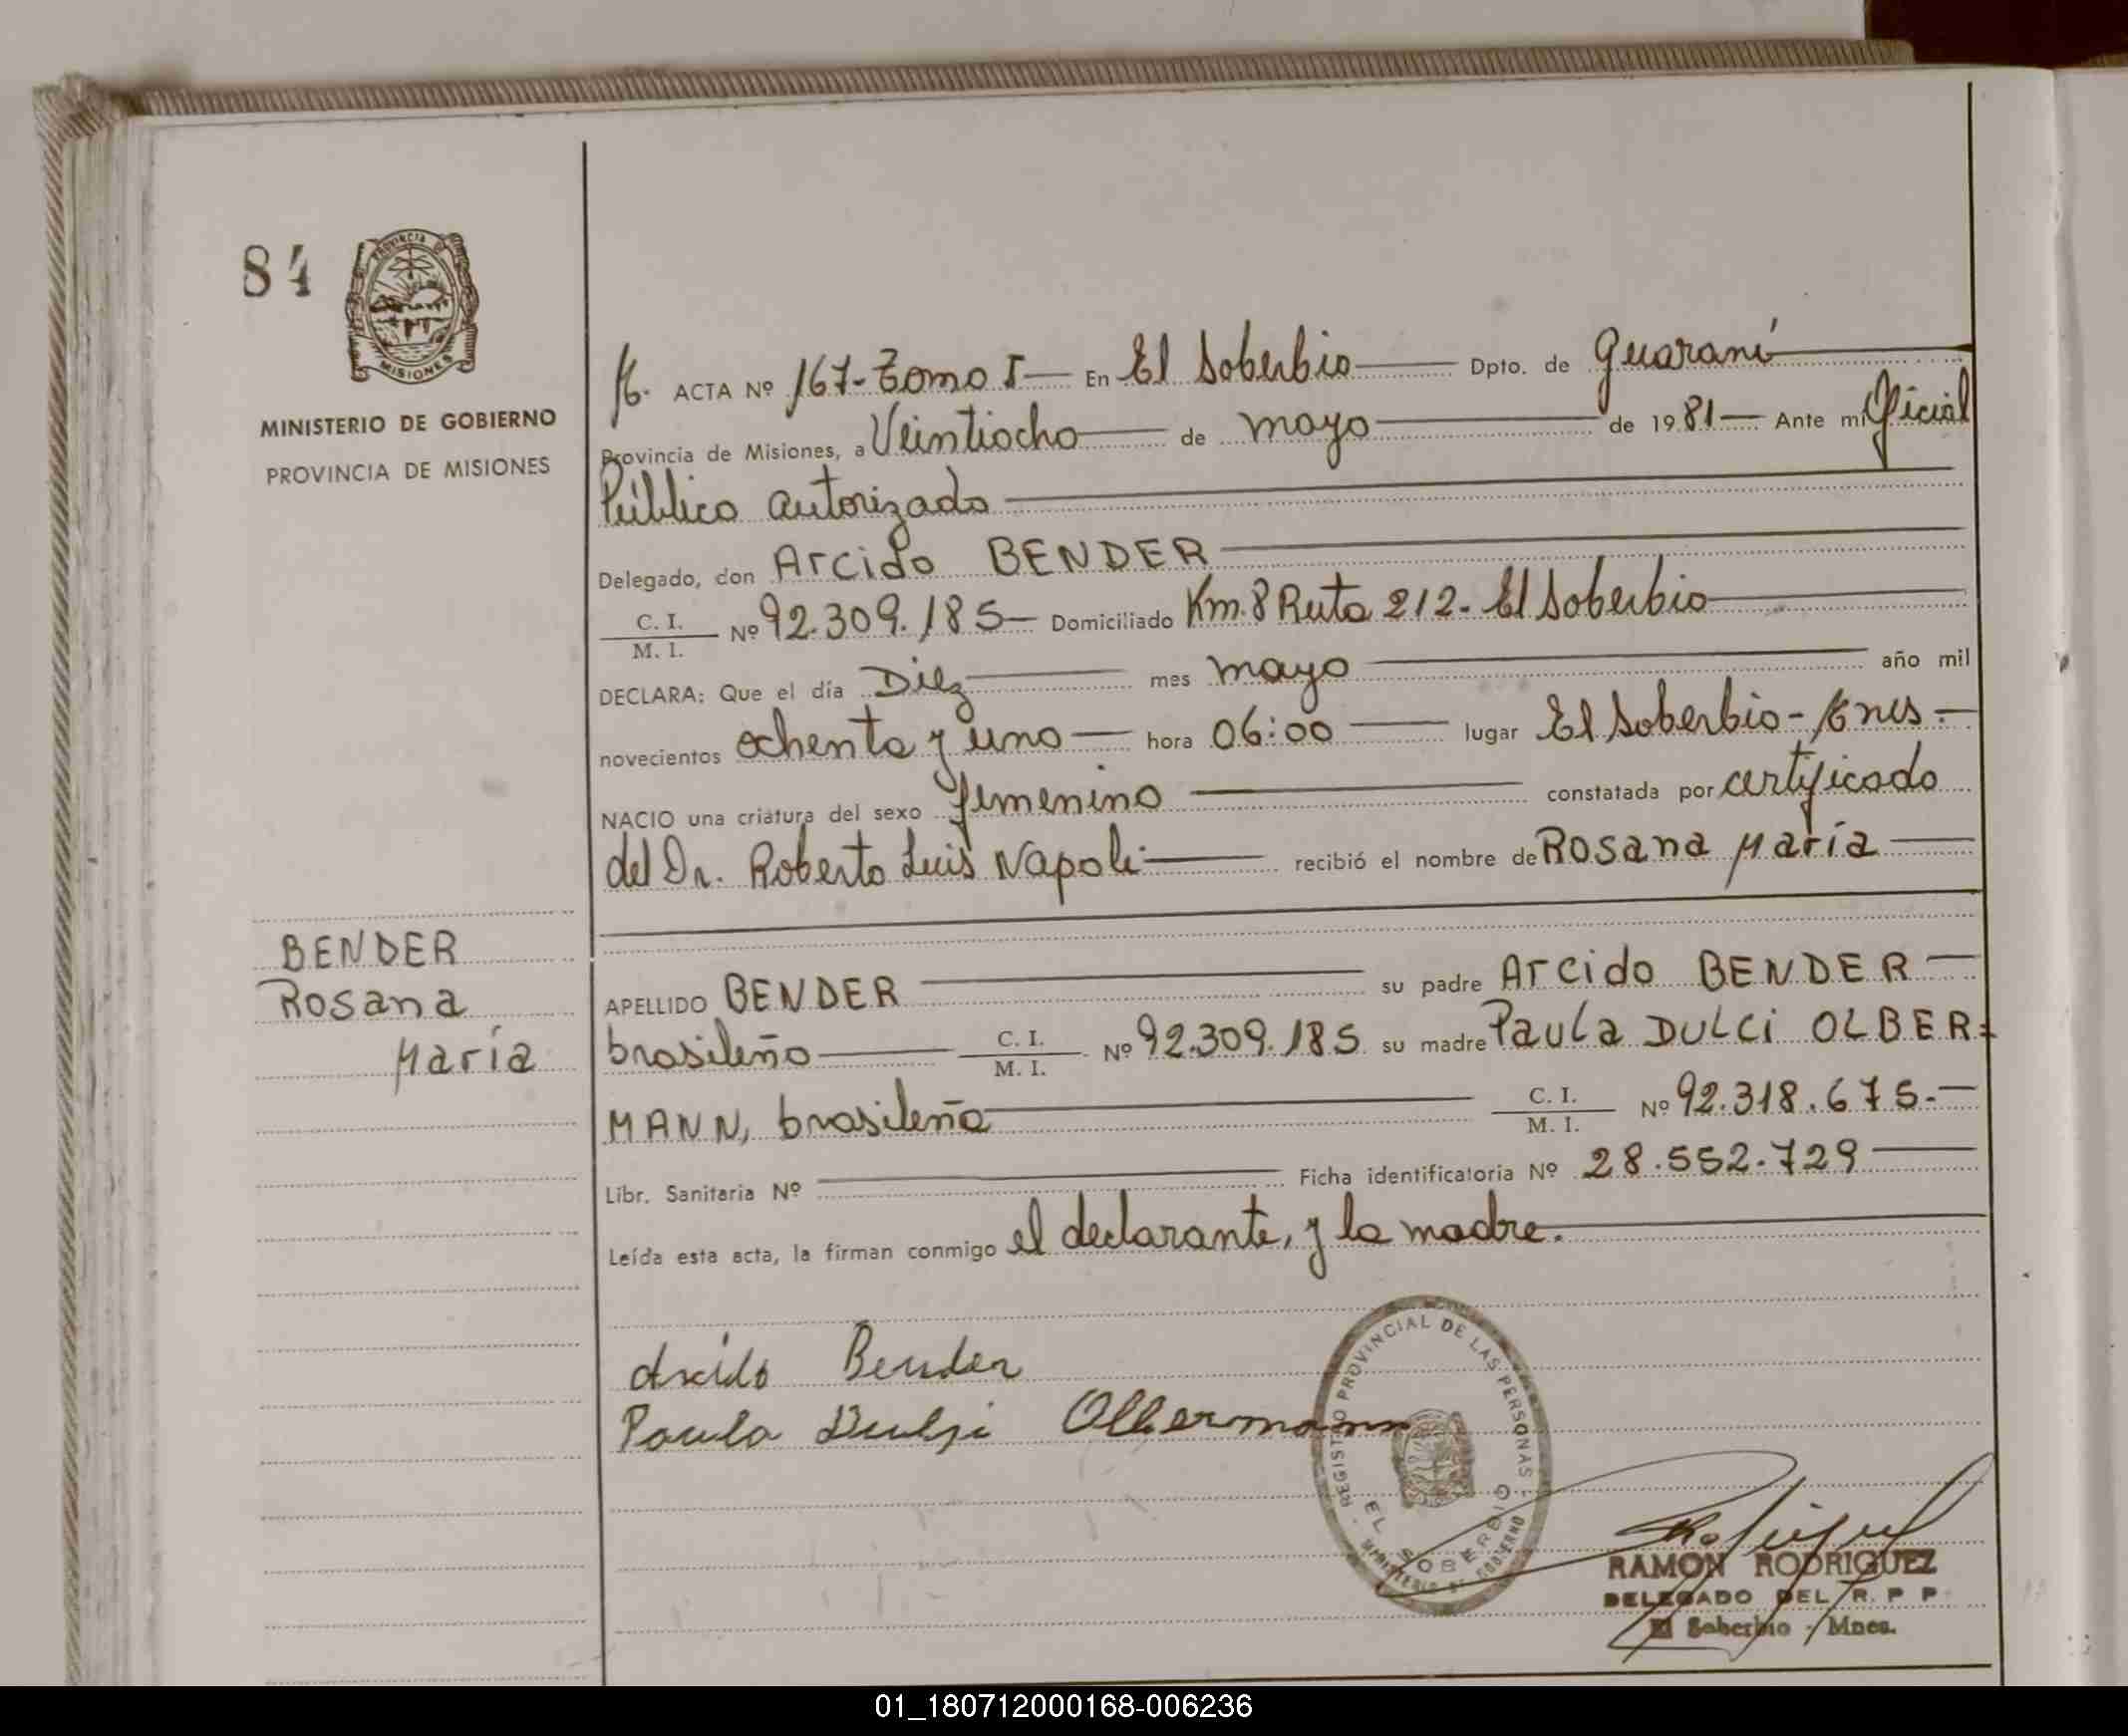 84
PROVINCIA DE
MISIONES
MINISTERIO DE GOBIERNO
PROVINCIA DE MISIONES
ACTA Nº 167-Tomo I — En El Soberbio — Dpto. de Guaraní
Provincia de Misiones, a Veintiocho — de mayo — de 1981 — Ante mí Oficial
Público autorizado
Delegado, don Arcido BENDER
C. I. / M. I. Nº 92.309.185 — Domiciliado Km. 8 Ruta 212 - El Soberbio
DECLARA: Que el día Diez — mes mayo — año mil
novecientos ochenta y uno — hora 06:00 — lugar El Soberbio -
NACIO una criatura del sexo femenino — constatada por certificado
del Dr. Roberto Luis Napoli — recibió el nombre de Rosana María
BENDER
Rosana
María
APELLIDO BENDER — su padre Arcido BENDER —
brasileño — C. I. / M. I. Nº 92.309.185 su madre Paula DULCi OLBER=
MANN, brasileña — C. I. / M. I. Nº 92.318.675.-
Libr. Sanitaria Nº — Ficha identificatoria Nº 28.552.729
Leída esta acta, la firman conmigo el declarante, y la madre.
Arcido Bender
Paula Dulsi Olbermann
REGISTRO PROVINCIAL DE LAS PERSONAS
EL SOBERBIO
MINISTERIO DE GOBIERNO
RAMON RODRIGUEZ
DELEGADO DEL R. P P
El Soberbio - Mnes.
01_180712000168-006236